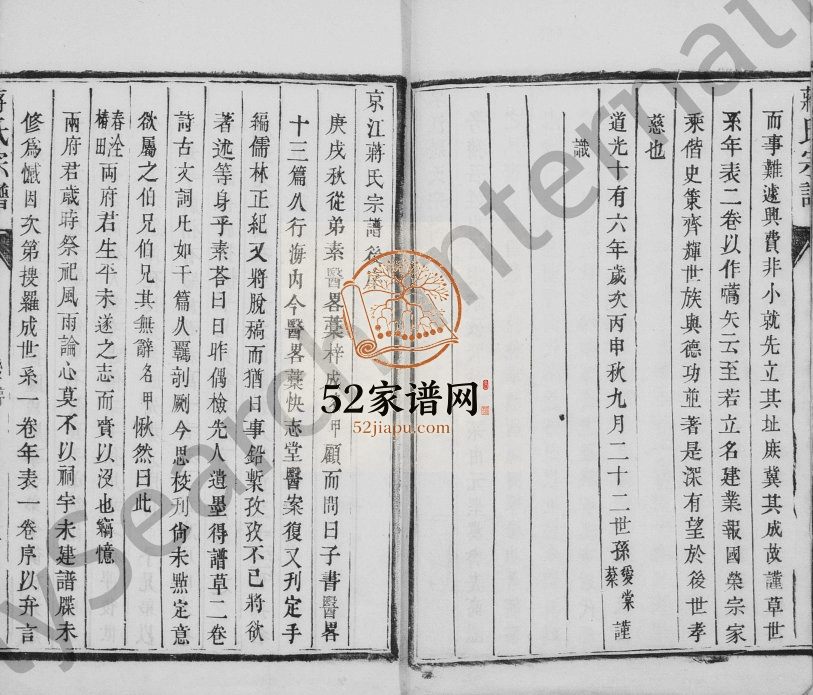 而事難遽興費非小就先立其址庶冀其成故謹草世
系年表二卷以作蒿矢云至若立名建業報國榮宗家
乘偕史策齊輝世族與德功並著是深有望於後世孝
慈也
道光十有六年歲次丙申秋九月二十二世孫愛棠蔡謹
識
京江蔣氏宗譜後
庚戌秋從弟素醫畧藁梓成甲顧而問曰子書醫畧
十三篇久行海內今醫畧藁快志堂醫案復又刊定手
編儒林正紀又將脫稿而猶日事鉛槧孜孜不已將欲
著述等身乎素答曰日昨偶檢先人遺墨得譜草二卷
詩古文詞凡如干篇久羈剞劂今思校刋尙未㸃定意
欲屬之伯兄伯兄其無辭名甲愀然曰此
春洤椿田兩府君生平未遂之志而賫以沒也竊憶
兩府君歲時祭祀風雨論心莫不以祠宇未建譜牒未
修爲憾因次第搜羅成世系一卷年表一卷序以弁言
蔣氏宗譜
蔣氏宗譜
52家谱网
52jiapu.com
lySearch International